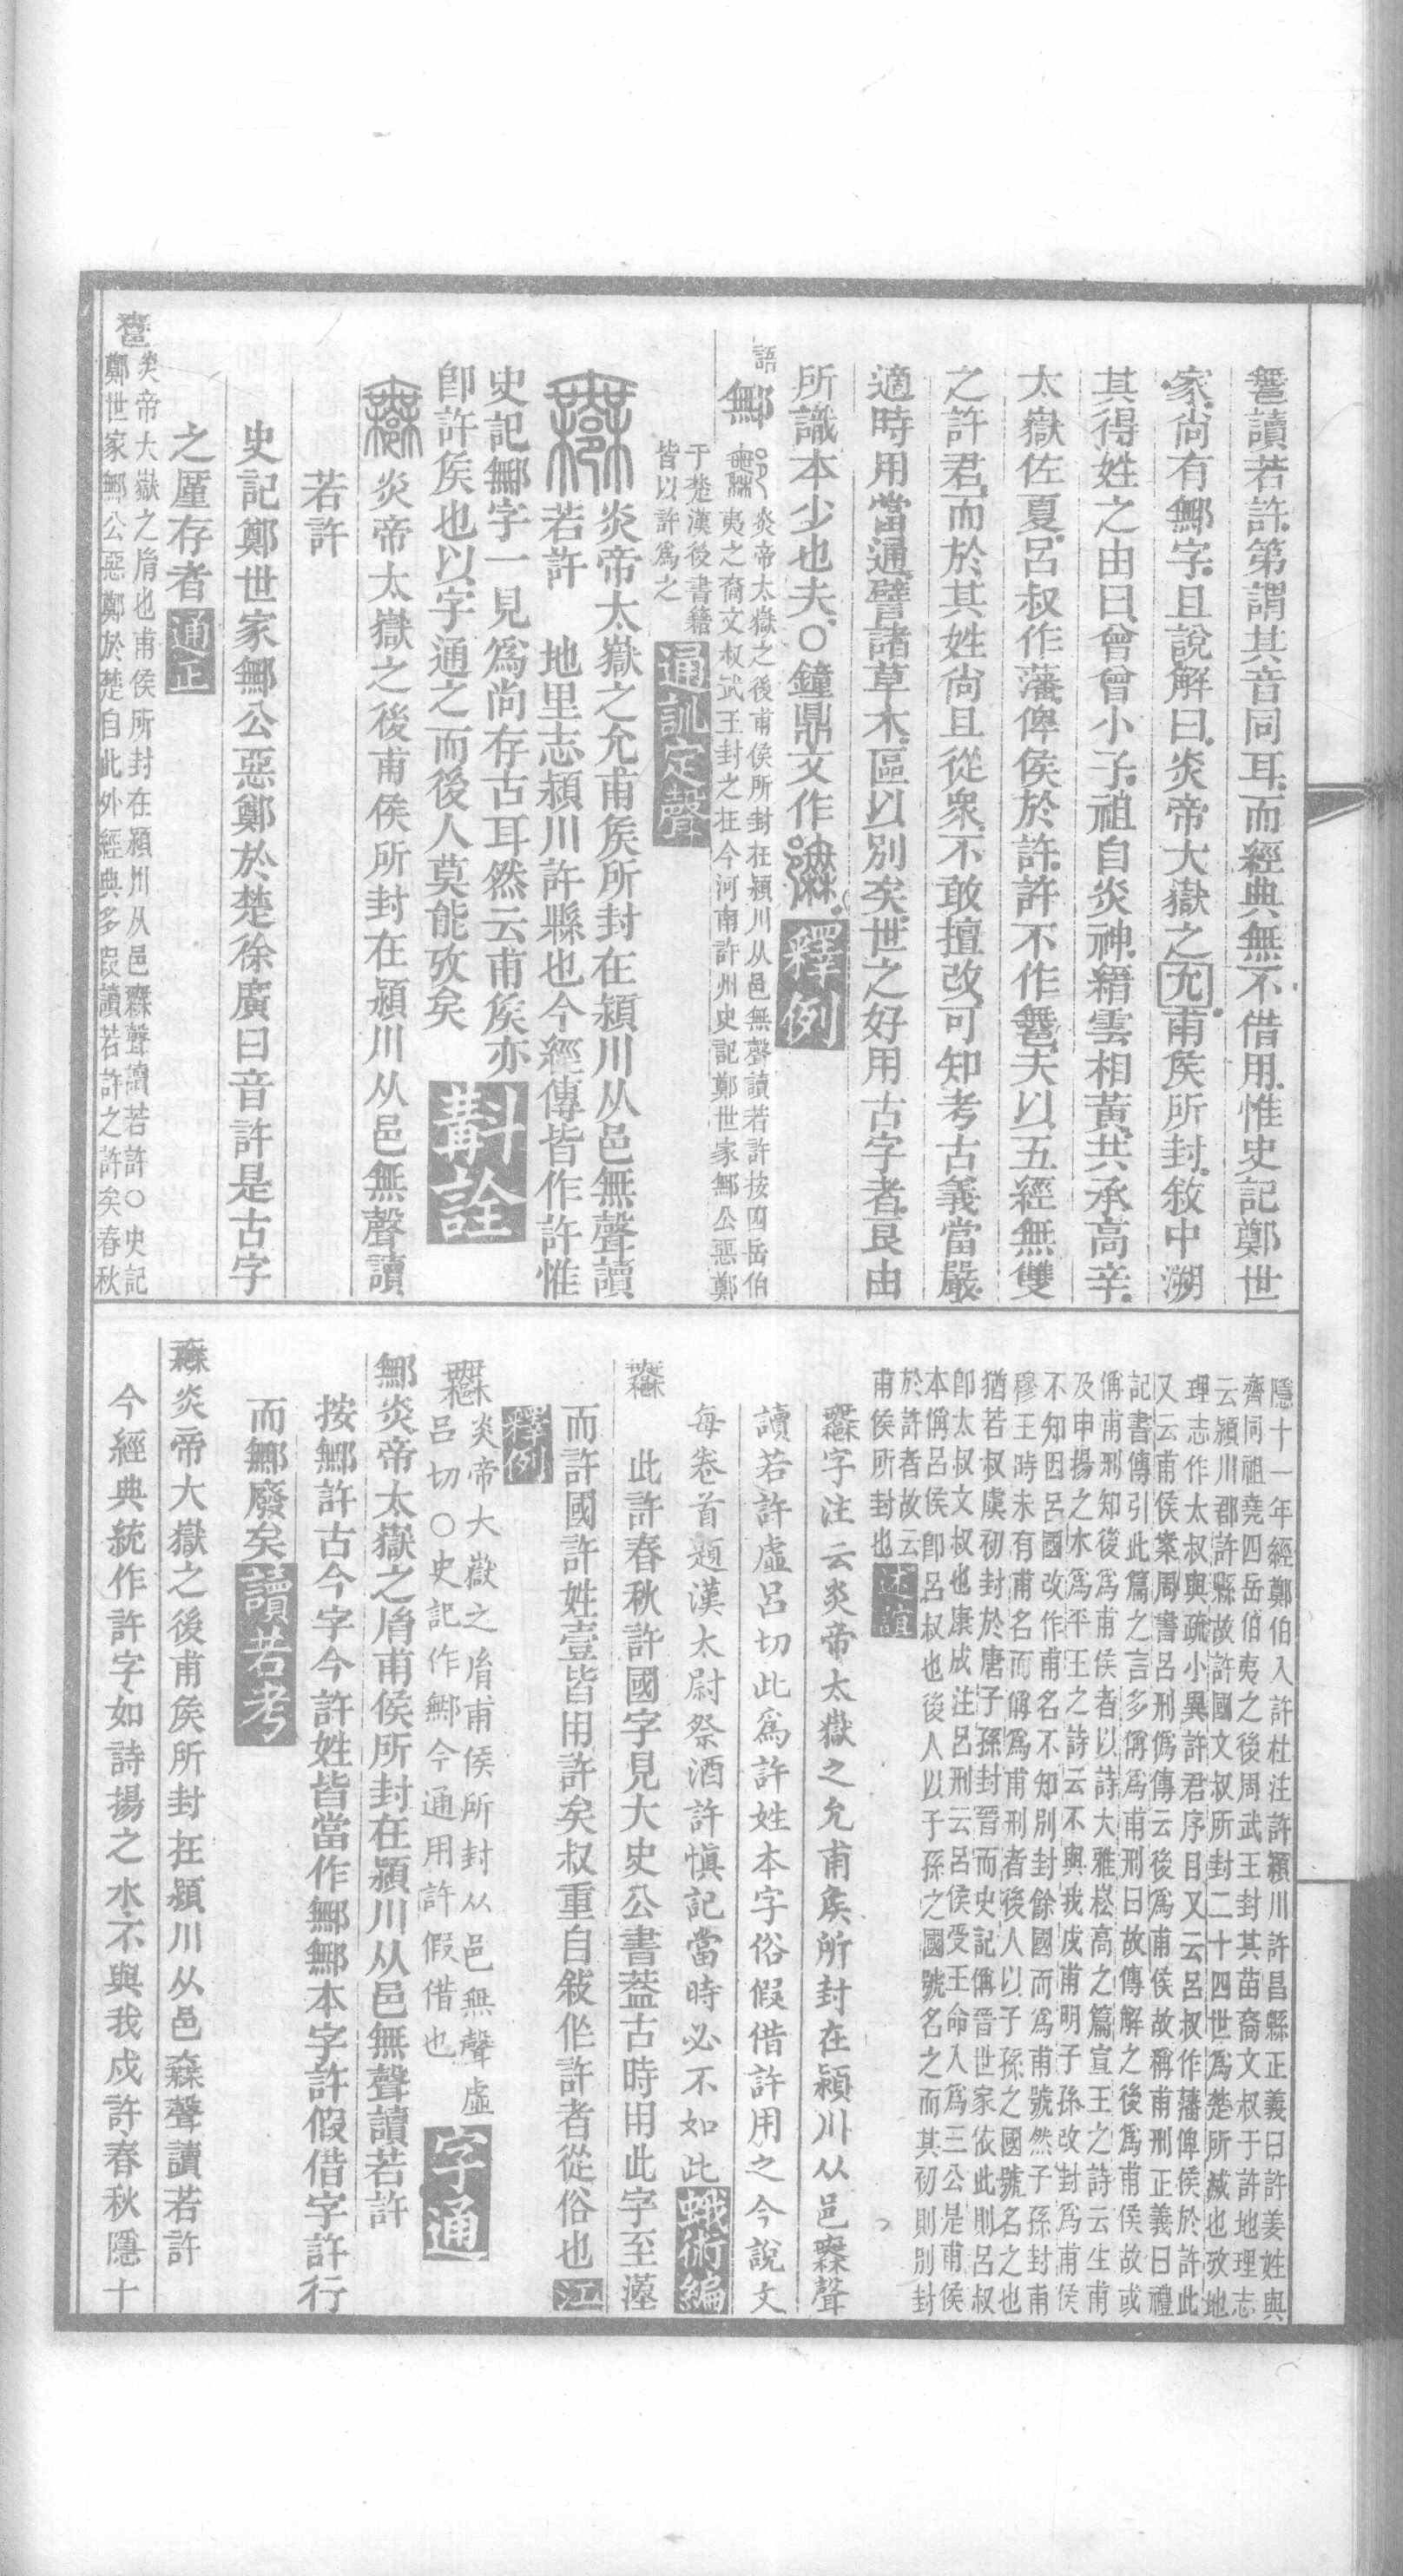 鄦讀若許第謂其音同耳而經典無不借用惟史記鄭世
家尚有鄦字且說解曰炎帝大嶽之允甫矦所封敘中溯
其得姓之由曰曾曾小子祖自炎神縉雲相黃共承高辛
太嶽佐夏呂叔作藩俾侯於許許不作鄦夫以五經無雙
之許君而於其姓尚且從衆不敢擅改可知考古義當嚴
適時用當通譬諸草木區以別矣世之好用古字者良由
所識本少也夫〇鐘鼎文作釋例
語鄦炎帝太嶽之後甫侯所封在潁川从邑無聲讀若許按四岳伯
夷之裔文叔武王封之在今河南許州史記鄭世家鄦公惡鄭
于楚漢後書籍
皆以許爲之通訓定聲
炎帝太嶽之允甫矦所封在潁川从邑無聲讀
若許　地里志潁川許縣也今經傳皆作許惟
史記鄦字一見爲尚存古耳然云甫矦亦
卽許矦也以字通之而後人莫能攷矣斠詮
炎帝太嶽之後甫侯所封在潁川从邑無聲讀
若許
史記鄭世家鄦公惡鄭於楚徐廣曰音許是古字
之厪存者通正
炎帝大嶽之胤也甫侯所封在潁川从邑聲讀若許〇史記
鄭世家鄦公惡鄭於楚自此外經典多叚讀若許之許矣春秋
隱十一年經鄭伯入許杜注許潁川許昌縣正義曰許姜姓與
齊同祖堯四岳伯夷之後周武王封其苗裔文叔于許地理志
云潁川郡許縣故許國文叔所封二十四世爲楚所滅也攷地
理志作太叔與疏小異許君序目又云呂叔作藩俾侯於許此
又云甫侯案周書呂刑僞傳云後爲甫侯故稱甫刑正義曰禮
記書傳引此篇之言多偁爲甫刑曰故傳解之後爲甫侯故或
偁甫刑知後爲甫侯者以詩大雅崧高之篇宣王之詩云生甫
及申揚之水爲平王之詩云不與我戍甫明子孫改封爲甫侯
不知因呂國改作甫名不知別封餘國而爲甫號然子孫封甫
穆王時未有甫名而偁爲甫刑者後人以子孫之國號名之也
猶若叔虞初封於唐子孫封晉而史記偁晉世家依此則呂叔
卽太叔文叔也康成注呂刑云呂侯受王命入爲三公是甫侯
本偁呂侯卽呂叔也後人以子孫之國號名之而其初則別封
於許者故云
甫侯所封也述誼
字注云炎帝太嶽之允甫矦所封在潁川从邑聲
讀若許虛呂切此爲許姓本字俗假借許用之今說文
每卷首題漢太尉祭酒許愼記當時必不如此蛾術編
此許春秋許國字見大史公書葢古時用此字至漢
而許國許姓壹皆用許矣叔重自敘作許者從俗也江
釋例
炎帝大嶽之胤甫侯所封从邑無聲虛
呂切〇史記作鄦今通用許假借也字通
鄦炎帝太嶽之胤甫侯所封在潁川从邑無聲讀若許
按鄦許古今字今許姓皆當作鄦鄦本字許假借字許行
而鄦廢矣讀若考
炎帝大嶽之後甫矦所封在潁川从邑聲讀若許
今經典統作許字如詩揚之水不與我戍許春秋隱十